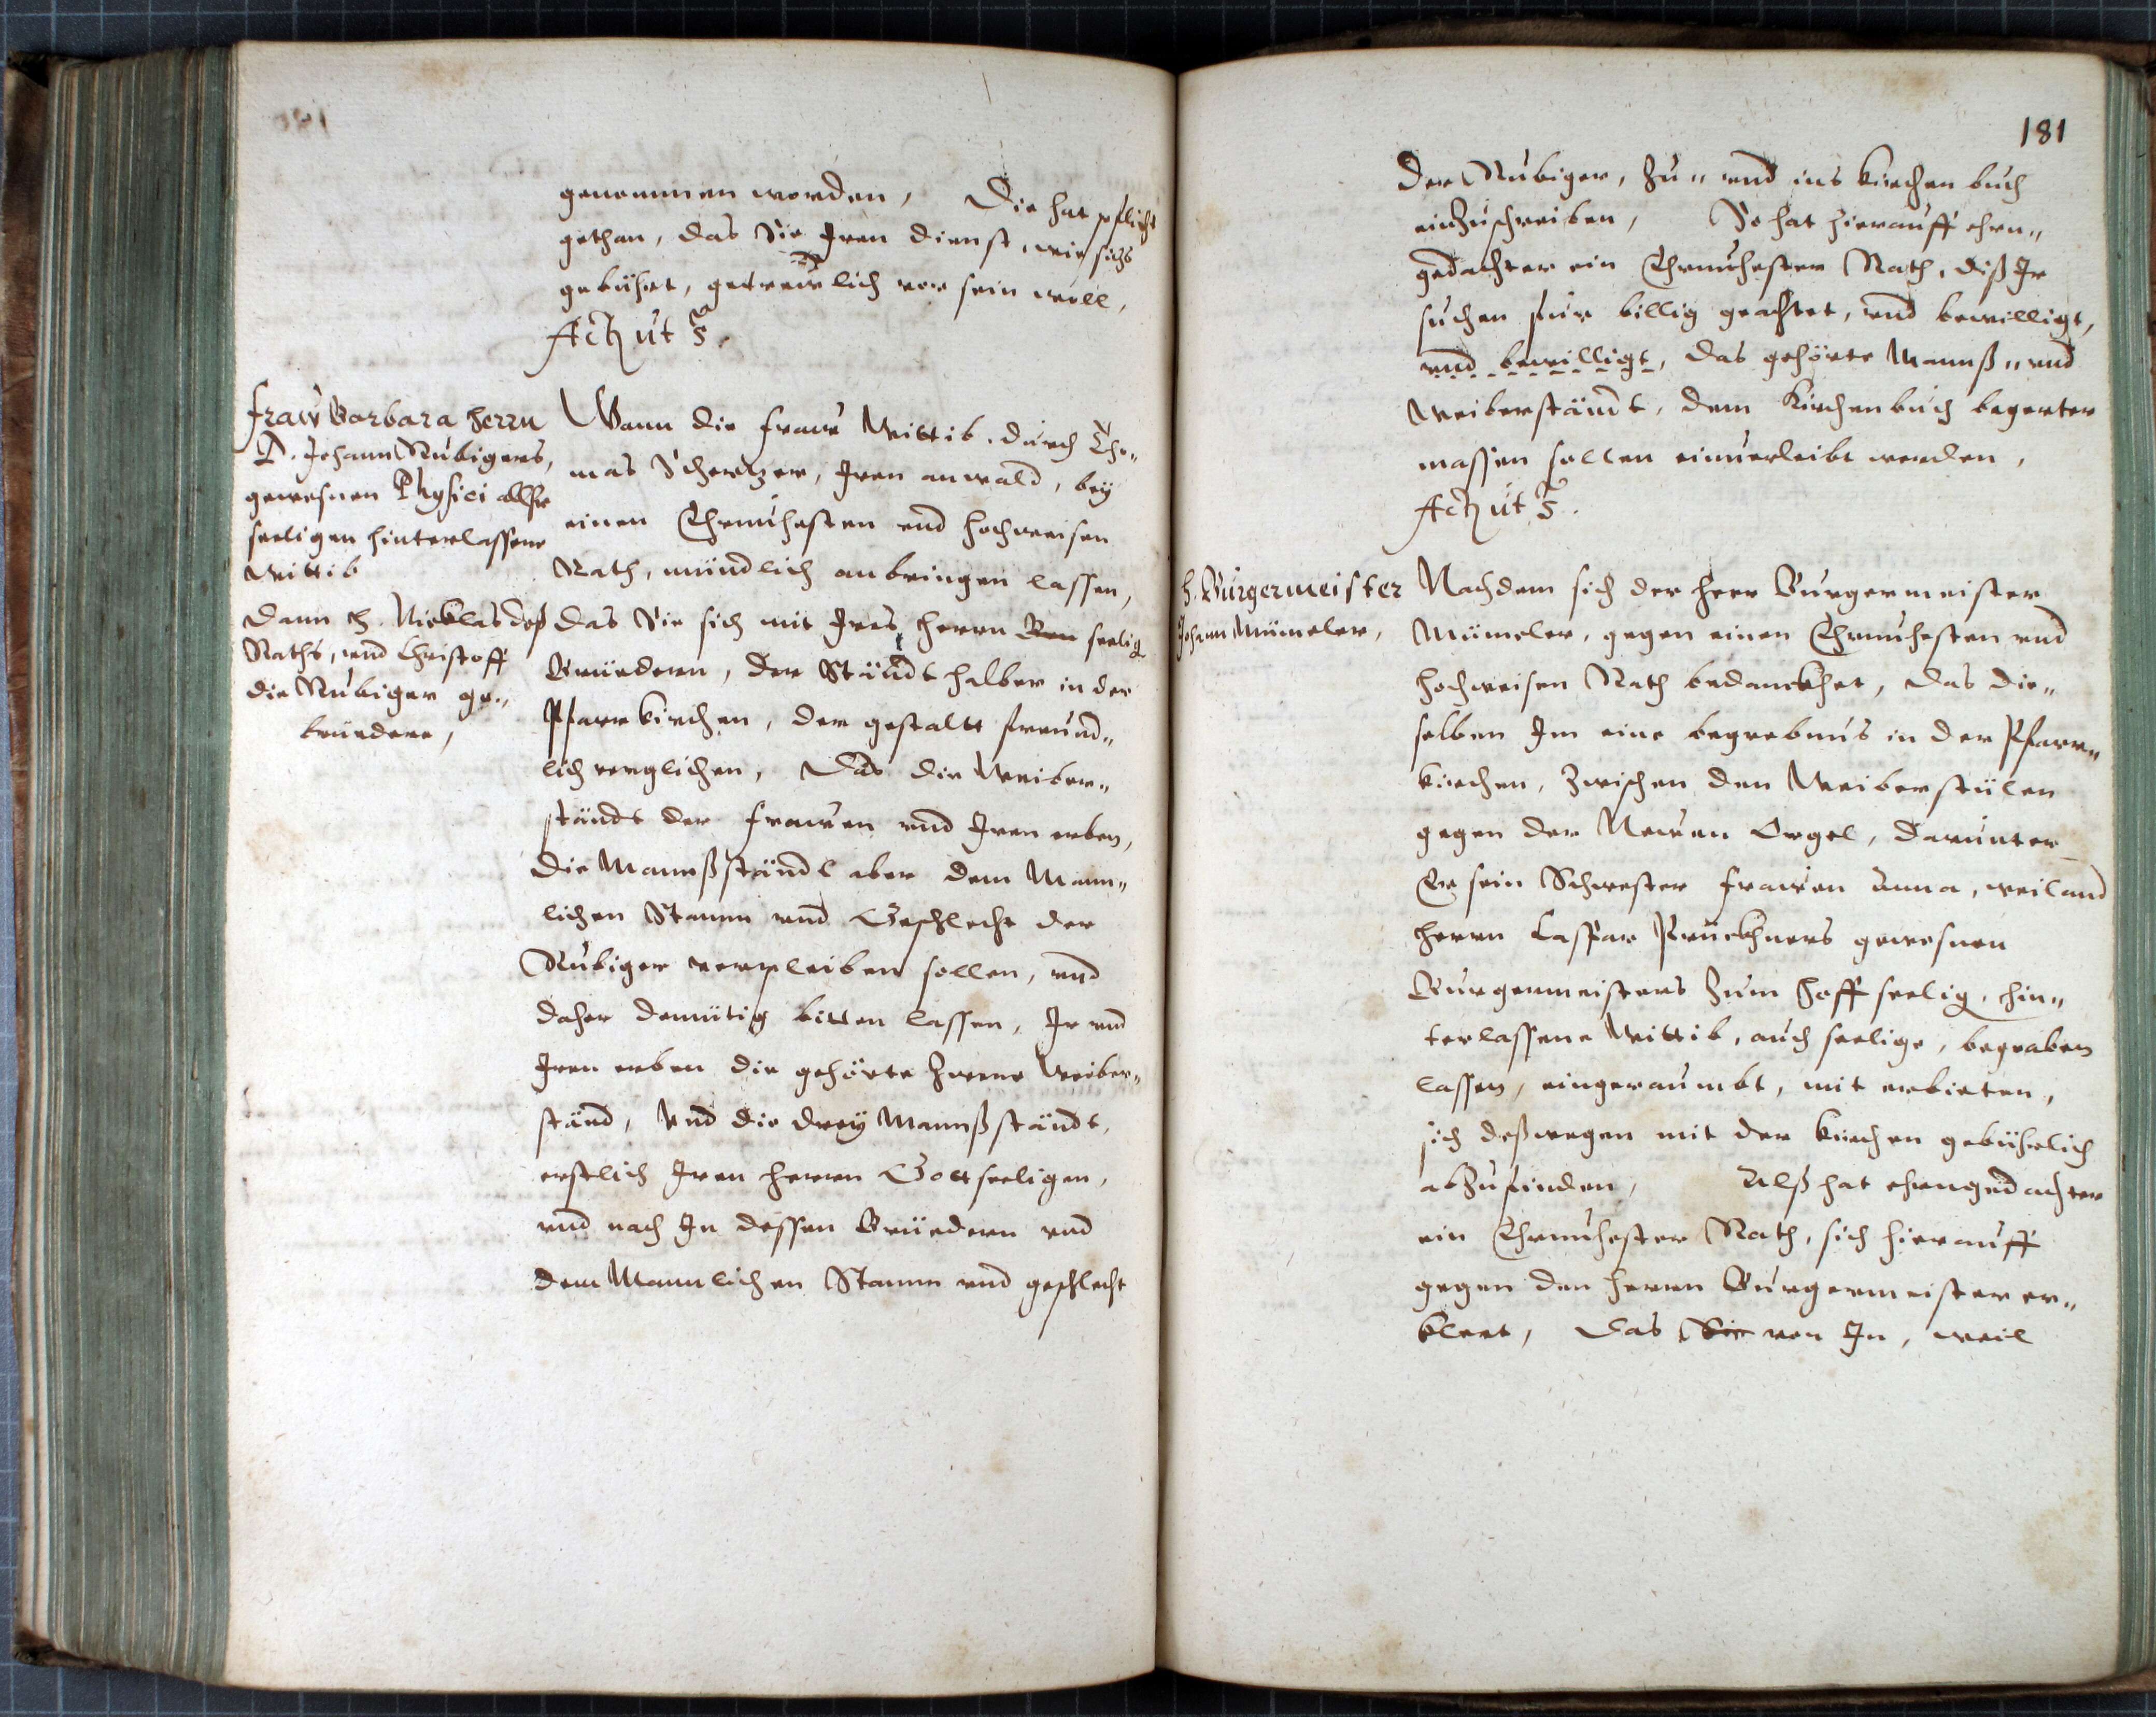 genommen worden, Die hat pflicht
gethan, das Sie Iren dienst, wie sichs
gebührt, getrewlich vor sein will,
Act. ut s.
Fraw Barbara Herrn
D. Johann Rubigers,
gewesnen Physici allhie
seeligen hinterlassene
Wittib
Dann H. Nicklas deß
Raths, vnd Christoff
die Rubiger ge„
brüedere,
Wann die fraw Wittib, durch Tho„
mas Schertzer, Iren anwald, bey
einen Ehrnuhesten vnd hochweisen
Rath, mündlich anbringen lassen,
das Sie sich mit Ires herrn seelig
Brüedern, der Ständt halber in der
Pfarrkirchen, der gestaltt freund„
lich verglichen, Das die Weiber„
ständt der frawen vnd Iren erben,
die Mannßständt aber dem Mann„
lichen Stamm vnd Geschlecht der
Rubiger verpleiben sollen, vnd
daher demütig bitten lassen, Ir vnd
Iren erben die gehörte zwene Weiber„
ständ, vnd die drey Mannßständt,
erstlich Iren herrn Gottseeligen,
vnd nach In dessen Brüedern vnd
dem Mannlichen Stamm vnd geschlecht
181
der Rubiger, zu„ vnd ins Kirchenbuch
einzuschreiben, So hat hierauff ehrn„
gedachter ein Ehrnuhester Rath, diß Ir
suchen für billig geachtet, vnd bewilligt,
vnd bewilligt, das gehörte Mannß„ vnd
Weiberständt, dem Kirchenbuch begerter
massen sollen einuerleibt werden,
Act. ut s.
H. Burgermeister
Johann Mümeler,
Nachdem sich der herr Burgermeister
Mümeler, gegen einen Ehrnuhesten vnd
hochweisen Rath bedanckhet, das die„
selben Im eine begrebnus in der Pfarr„
kirchen, zwischen den Weiberstülen
gegen der Newen Orgel, darunter
Er sein Schwester frawen Anna, weiland
herrn Caspar Prückhners gewesnen
Burgermeisters zum Hoff seelig, hin„
terlassene Wittib, auch seelige, begraben
lassen, eingeraumbt, mit erbieten,
sich deßwegen mit der Kirchen gebührlich
abzufinden, Alß hat ehrngedachter
ein Ehrnuhester Rath, sich hierauff
gegen den herrn Burgermeister er„
klert, Das Sie von In, weil